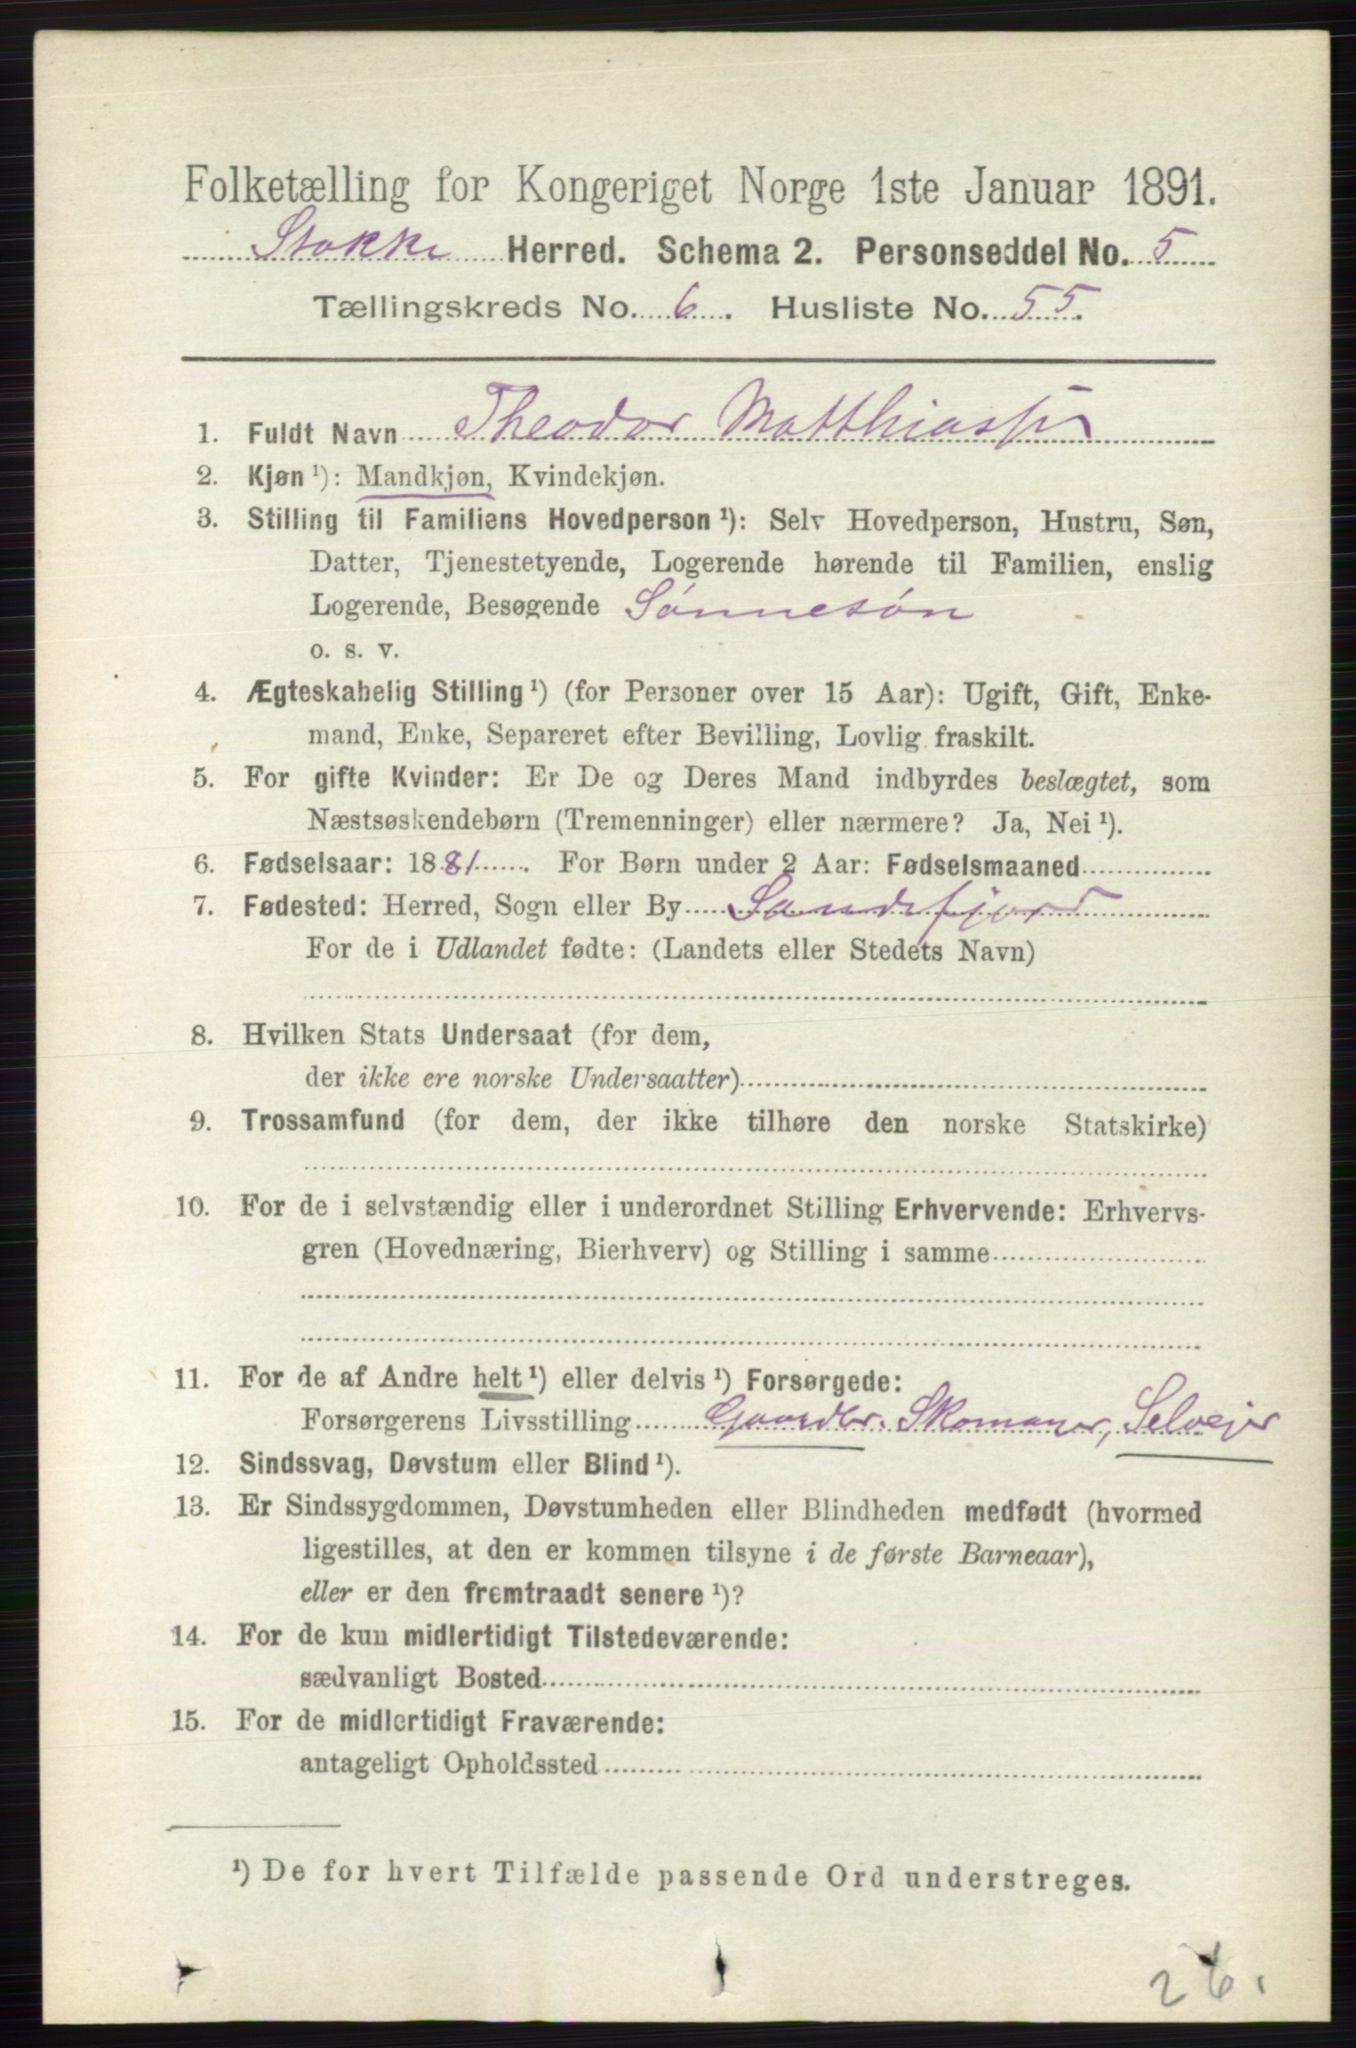 Folketælling for Kongeriget Norge 1ste Januar 1891.
Stokke Herred. Schema 2. Personseddel No. 5
Tællingskreds No. 6. Husliste No. 55.
1. Fuldt Navn Theodor Matthiassen
2. Kjøn ¹): Mandkjøn, Kvindekjøn.
3. Stilling til Familiens Hovedperson ¹): Selv Hovedperson, Hustru, Søn,
Datter, Tjenestetyende, Logerende hørende til Familien, enslig
Logerende, Besøgende Sønnesøn
o. s. v.
4. Ægteskabelig Stilling ¹) (for Personer over 15 Aar): Ugift, Gift, Enke-
mand, Enke, Separeret efter Bevilling, Lovlig fraskilt.
5. For gifte Kvinder: Er De og Deres Mand indbyrdes beslægtet, som
Næstsøskendebørn (Tremenninger) eller nærmere? Ja, Nei ¹).
6. Fødselsaar: 1881. For Børn under 2 Aar: Fødselsmaaned
7. Fødested: Herred, Sogn eller By Sandefjord
For de i Udlandet fødte: (Landets eller Stedets Navn)
8. Hvilken Stats Undersaat (for dem,
der ikke ere norske Undersaatter)
9. Trossamfund (for dem, der ikke tilhøre den norske Statskirke)
10. For de i selvstændig eller i underordnet Stilling Erhvervende: Erhvervs-
gren (Hovednæring, Bierhverv) og Stilling i samme
11. For de af Andre helt ¹) eller delvis ¹) Forsørgede:
Forsørgerens Livsstilling Gaardbr. Skomager, Selvejer
12. Sindssvag, Døvstum eller Blind ¹).
13. Er Sindssygdommen, Døvstumheden eller Blindheden medfødt (hvormed
ligestilles, at den er kommen tilsyne i de første Barneaar),
eller er den fremtraadt senere ¹)?
14. For de kun midlertidigt Tilstedeværende:
sædvanligt Bosted
15. For de midlertidigt Fraværende:
antageligt Opholdssted
¹) De for hvert Tilfælde passende Ord understreges.
26.